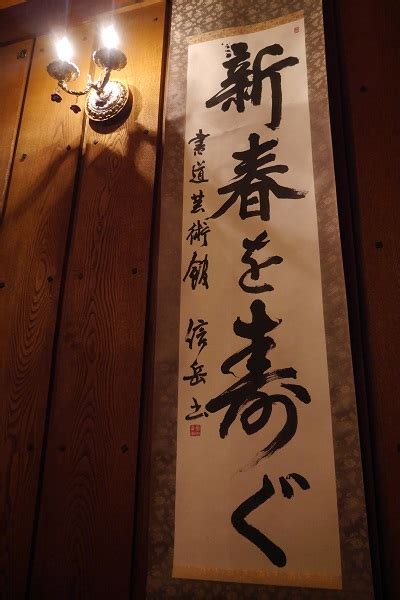 新春を寿ぐ
書道芸術館 信岳書